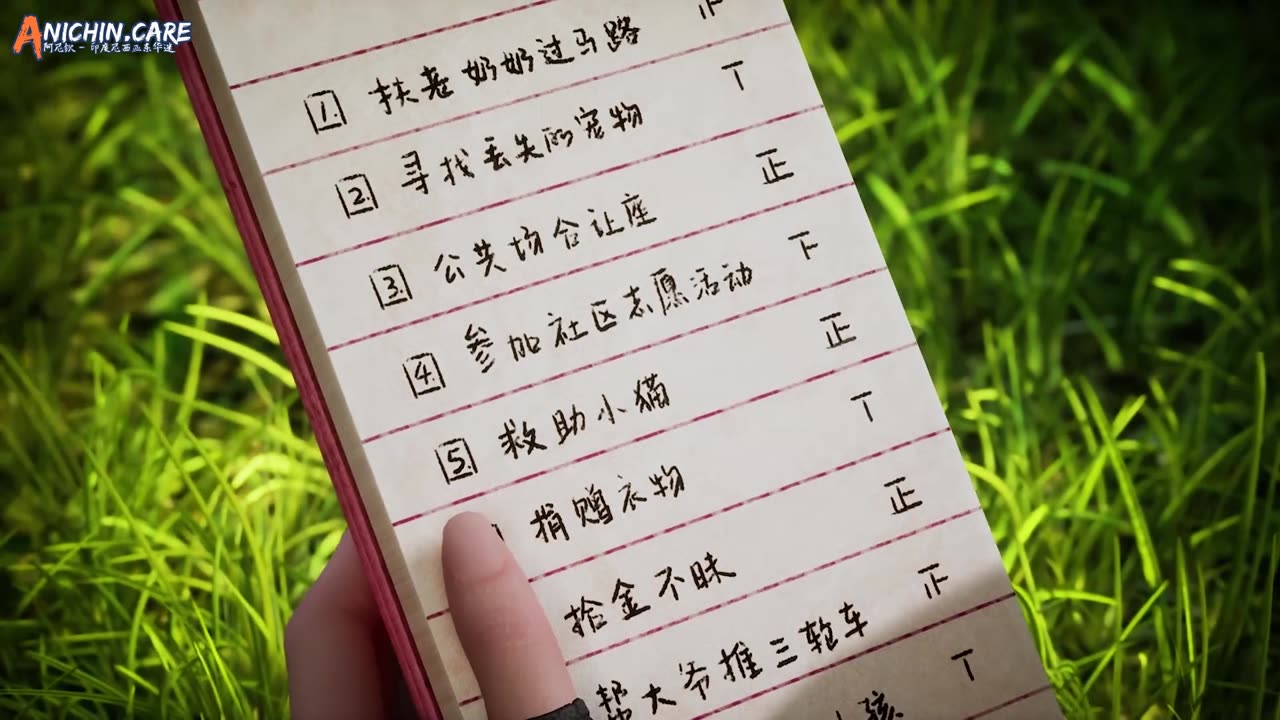 ANICHIN.CARE
阿尼钦 - 印度尼西亚东华迷
1. 扶老奶奶过马路
2. 寻找丢失的宠物 丅
3. 公共场合让座 正
4. 参加社区志愿活动 下
5. 救助小猫 正
捐赠衣物 丅
拾金不昧 正
帮大爷推三轮车
小孩 丅